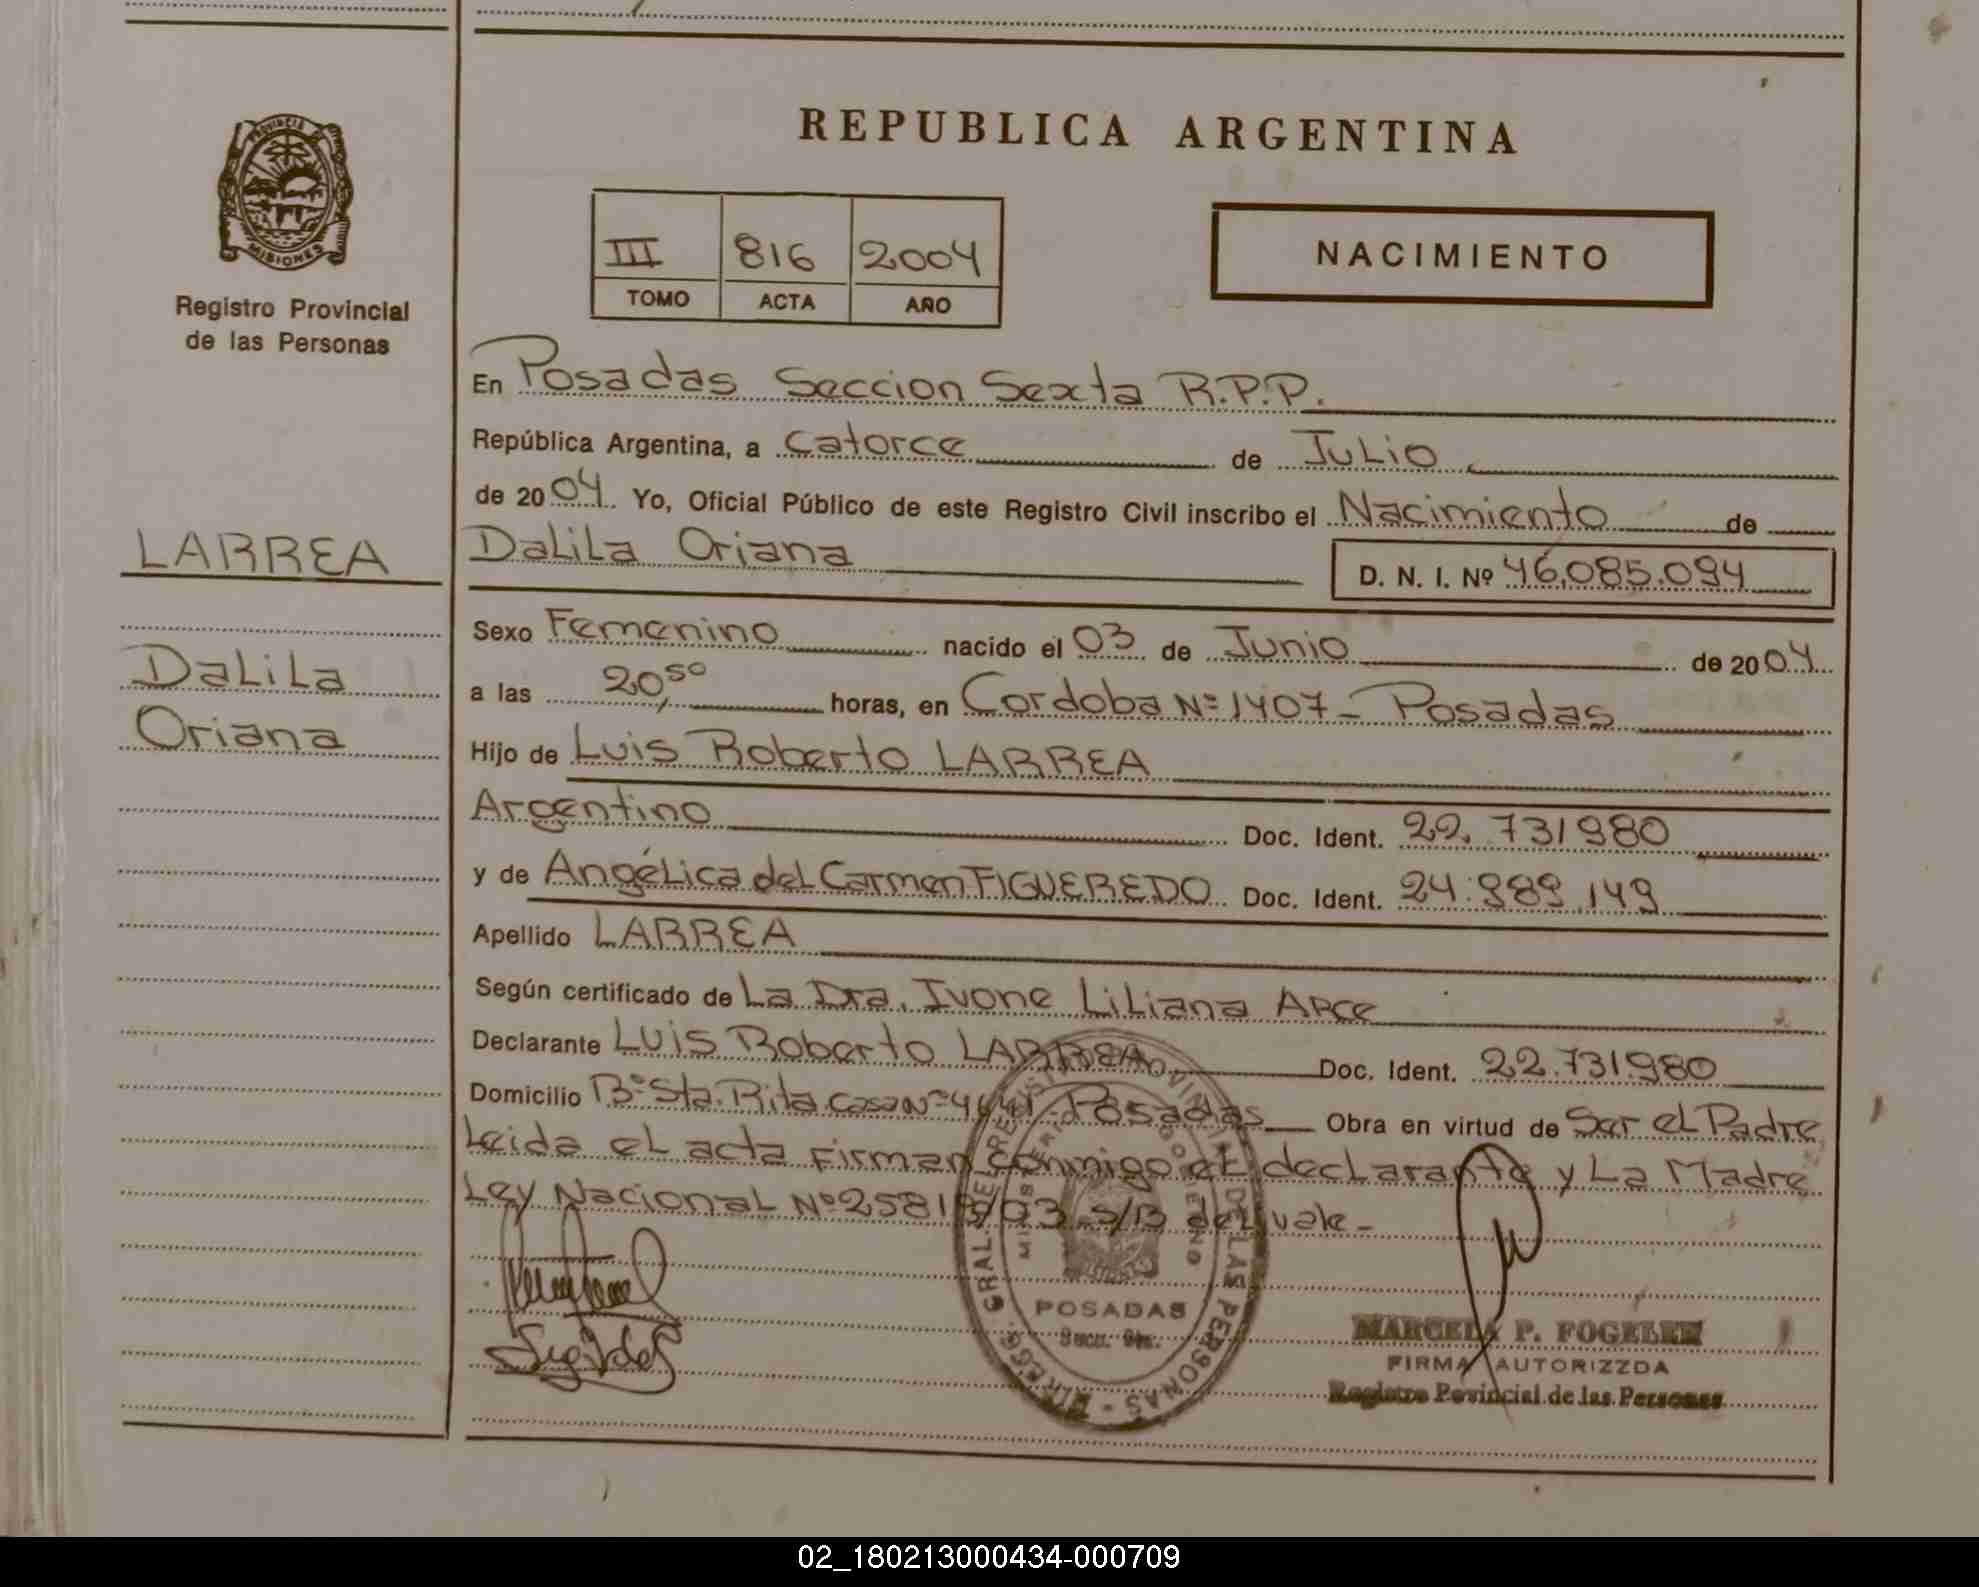 REPUBLICA ARGENTINA
PROVINCIA DE MISIONES
Registro Provincial
de las Personas
III 816 2004
TOMO ACTA AÑO
NACIMIENTO
En Posadas Seccion Sexta R.P.P.
República Argentina, a catorce de Julio
de 2004 Yo, Oficial Público de este Registro Civil inscribo el Nacimiento de
LARREA
Dalila Oriana
D. N. I. Nº 46.085.094
Sexo Femenino nacido el 03 de Junio de 2004
Dalila
Oriana
a las 20,50 horas, en Cordoba Nº 1407 - Posadas
Hijo de Luis Roberto LARREA
Argentino Doc. Ident. 22.731980
y de Angélica del Carmen FIGUEREDO Doc. Ident. 24.989.149
Apellido LARREA
Según certificado de La Dra. Ivone Liliana Arce
Declarante Luis Roberto LARREA Doc. Ident. 22.731.980
Domicilio Bº Sta. Rita casa Nº Posadas Obra en virtud de Ser el Padre
Leida el acta Firman conmigo el declarante y La Madre
Ley Nacional Nº 25819/03 S/B del vale -
POSADAS
MARCELA P. FOGELER
FIRMA AUTORIZZDA
Registro Povincial de las Personas
02_180213000434-000709